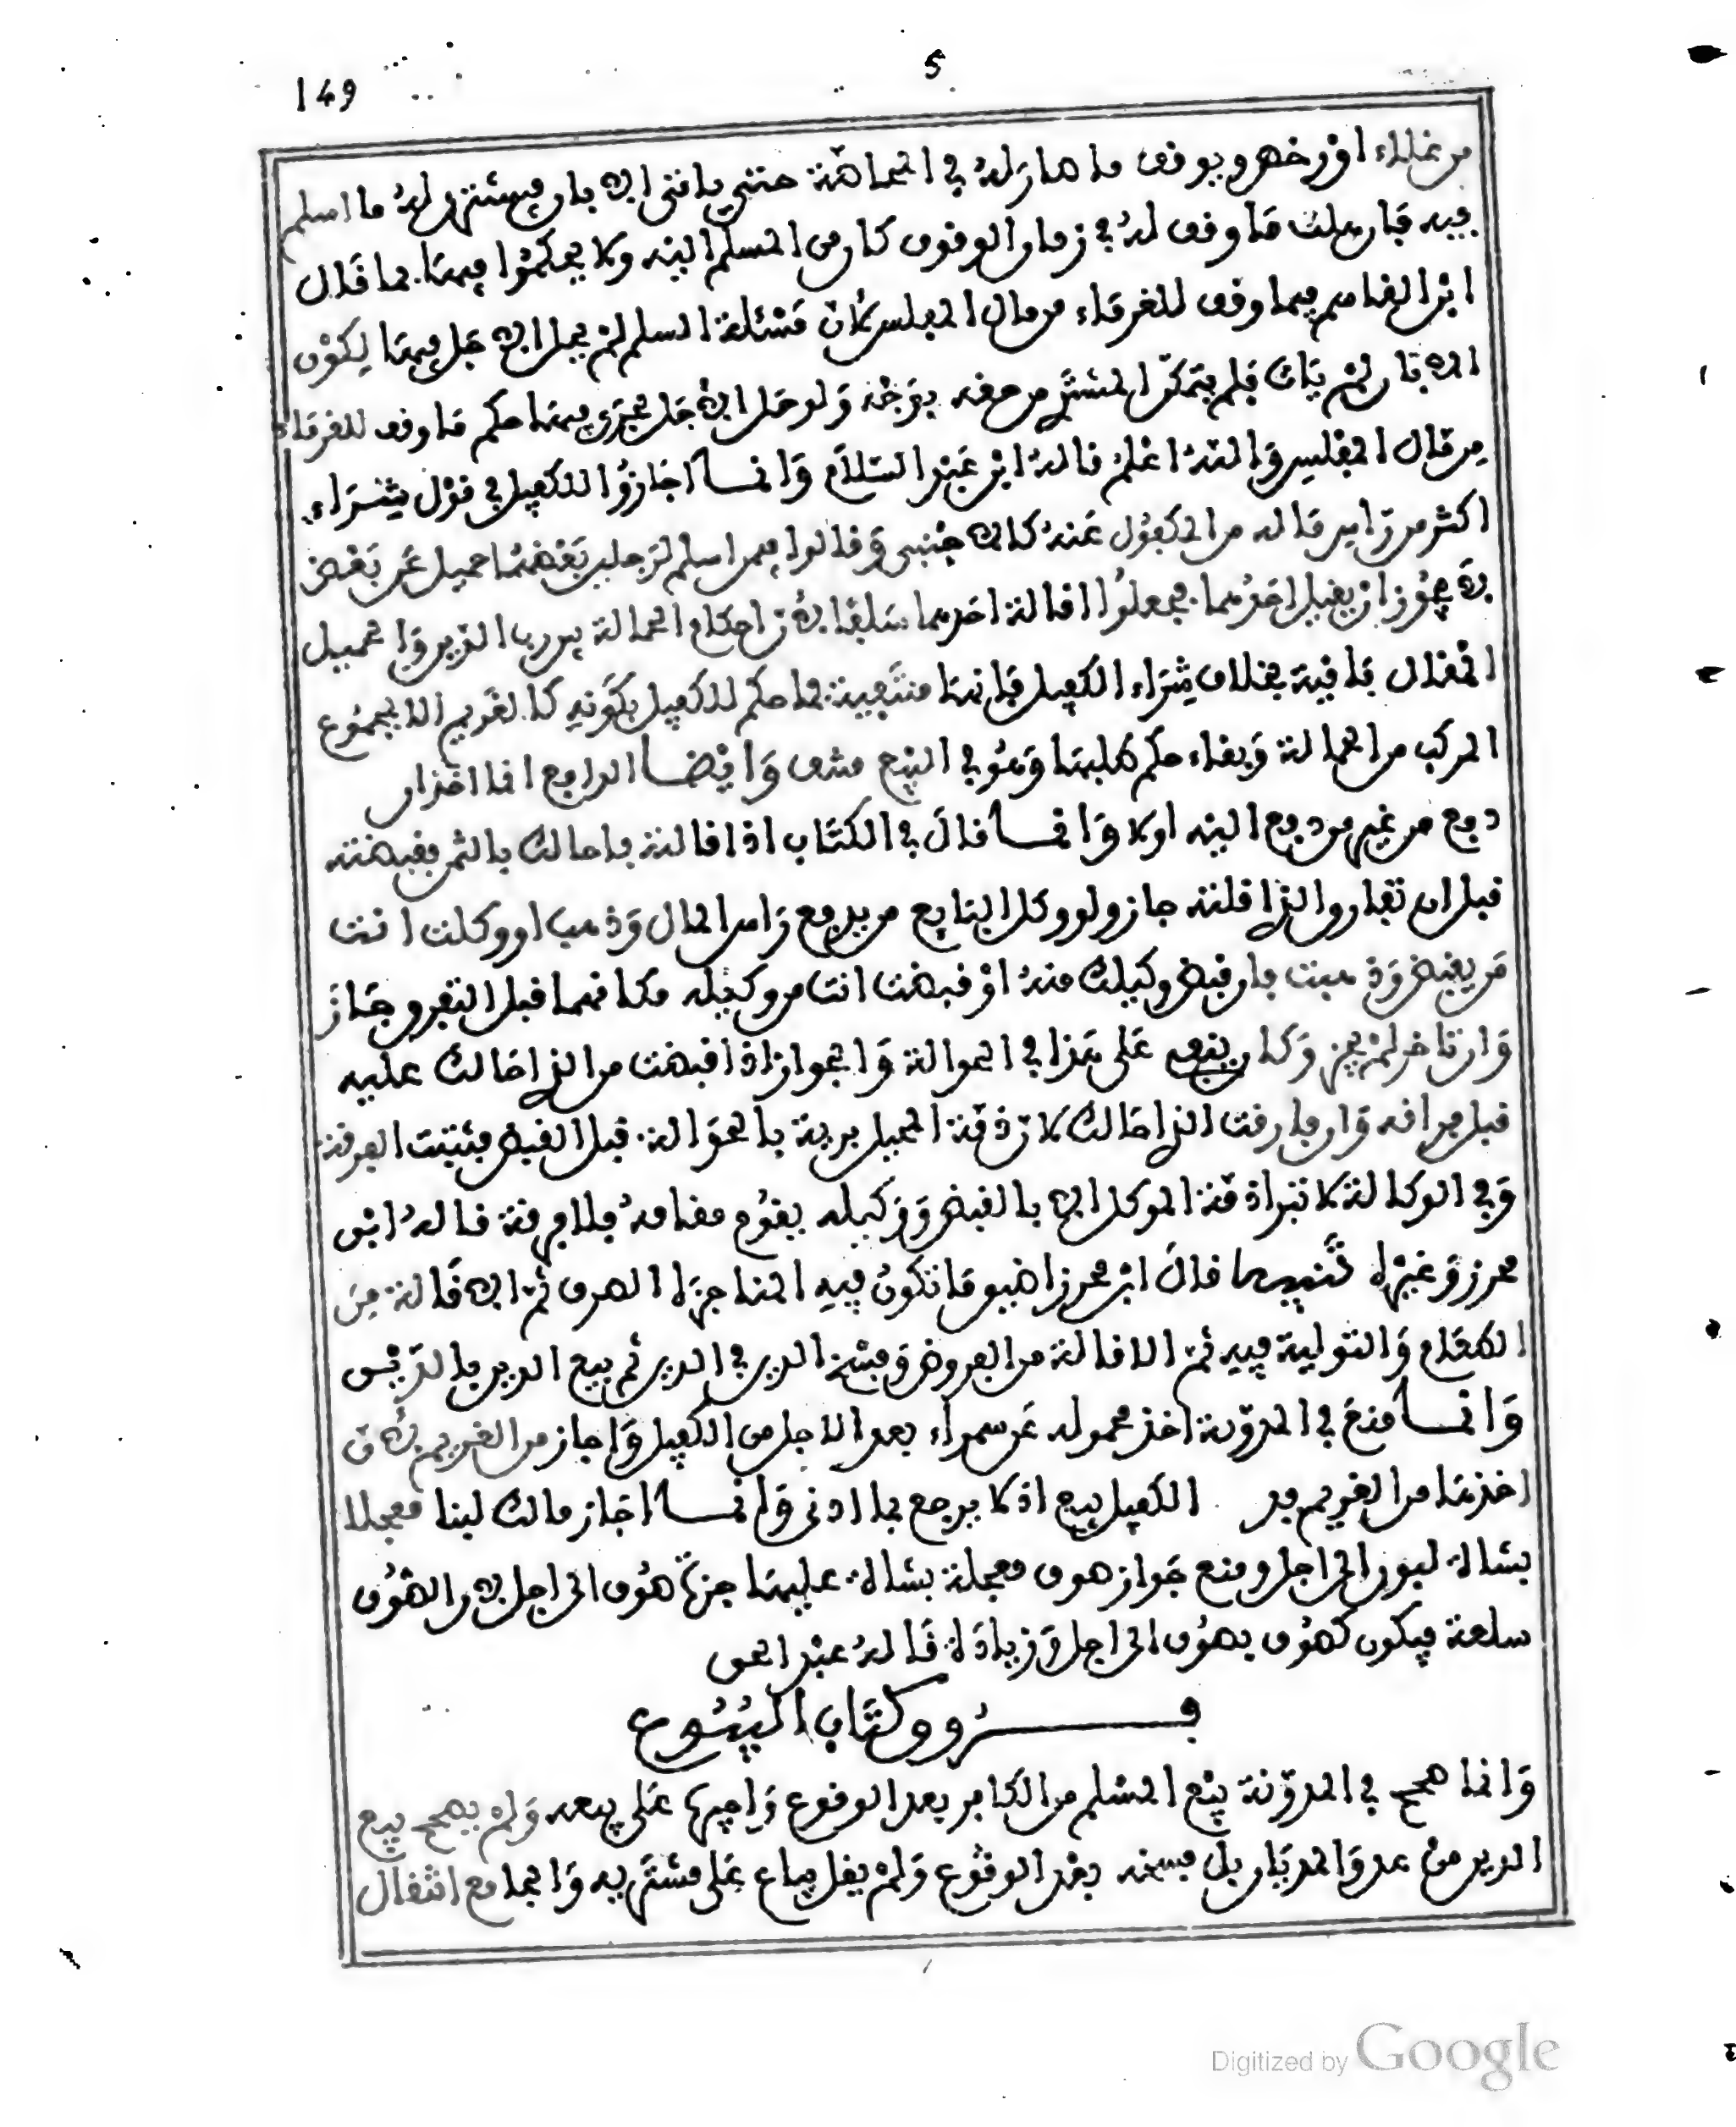 149
5
من غلاء او رخص ويوقف ما صار له في المحاصة حتى ياتي الابان فيشترى له ما اسلم
فيه فان هلك ما وقف له في زمان الوقوف كان من المسلم اليه ولا يحكموا فيها بما قال
ابن القاسم فيما وقف للغرماء من مال المفلس لان مسئلة السلم لم يحل الاجل فيها لكون
الابان لم يات فلم يتمكن المشتري من حقه بوجه ولو حل الاجل لجرى فيها حكم ما وقف للغرماء
من مال المفلس والله اعلم قاله ابن عبد السلام وانما اجازوا للكفيل في قول شراء
اكثر من راس ماله من المكفول عنه كالاجنبي وقالوا فيمن اسلم لرجلين بعضهما حميل عن بعض
لا يجوز ان يقيل احدهما فجعلوا اقالة احدهما سلفا لان احكام الحمالة بين رب الدين والحميل
المقال باقية بخلاف شراء الكفيل فانها منتفية فما حكم للكفيل بكونه كالغريم الا لمجموع
المركب من الحمالة وبقاء حكم طلبها وهو في البيع منتف وايضا الدافع اما اخذ ان
دفع من غير من دفع اليه اولا وانما قال في الكتاب اذا اقالته فاحالك بالثمن فقبضته
قبل ان تفارق الذي اقلته جاز ولو وكل البايع من يدفع راس المال وذهب او وكلت انت
من يقبض وذهبت فان قبض وكيلك منه او قبضت انت من وكيله مكانهما قبل التفرق جاز
وان تاخر لم يجز وكان ينبغي على هذا في الحوالة والجواز اذا قبضت من الذي احالك عليه
قبل فراقه وان فارقت الذي احالك لان ذمة المحيل برية بالحوالة قبل القبض فثبتت الفرقة
وفي الوكالة لا تبرا ذمة الموكل الا بالقبض ووكيله يقوم مقامه فلا فرقة قاله ابن
محرز وغيره تنبيه قال ابن محرز اضيق ما تكون فيه المناجزة الصرف ثم الاقالة من
الطعام والتولية فيه ثم الاقالة من العروض وفسخ الدين في الدين ثم بيع الدين بالدين
وانما منع في المدونة اخذ محمولة عن سمراء بعد الاجل من الكفيل واجاز من الغريم لان
اخذها من الغريم بدل الكفيل بيع اذ لا يرجع بما ادى وانما اجاز مالك لبنا معجلا
بشاة لبون الى اجل ومنع جواز صوف معجلة بشاة عليها جزة صوف الى اجل لان الصوف
سلعة فيكون كصوف بصوف الى اجل وزيادة قاله عبد الحق
فــروق كتاب البيوع
وانما صحح في المدونة بيع المسلم من الكافر بعد الوقوع واجبره على بيعه ولم يصحح بيع
الدين من عدو المديان بل فسخه بعد الوقوع ولم يقل يباع على مشتريه والجامع انتقال
Digitized by Google